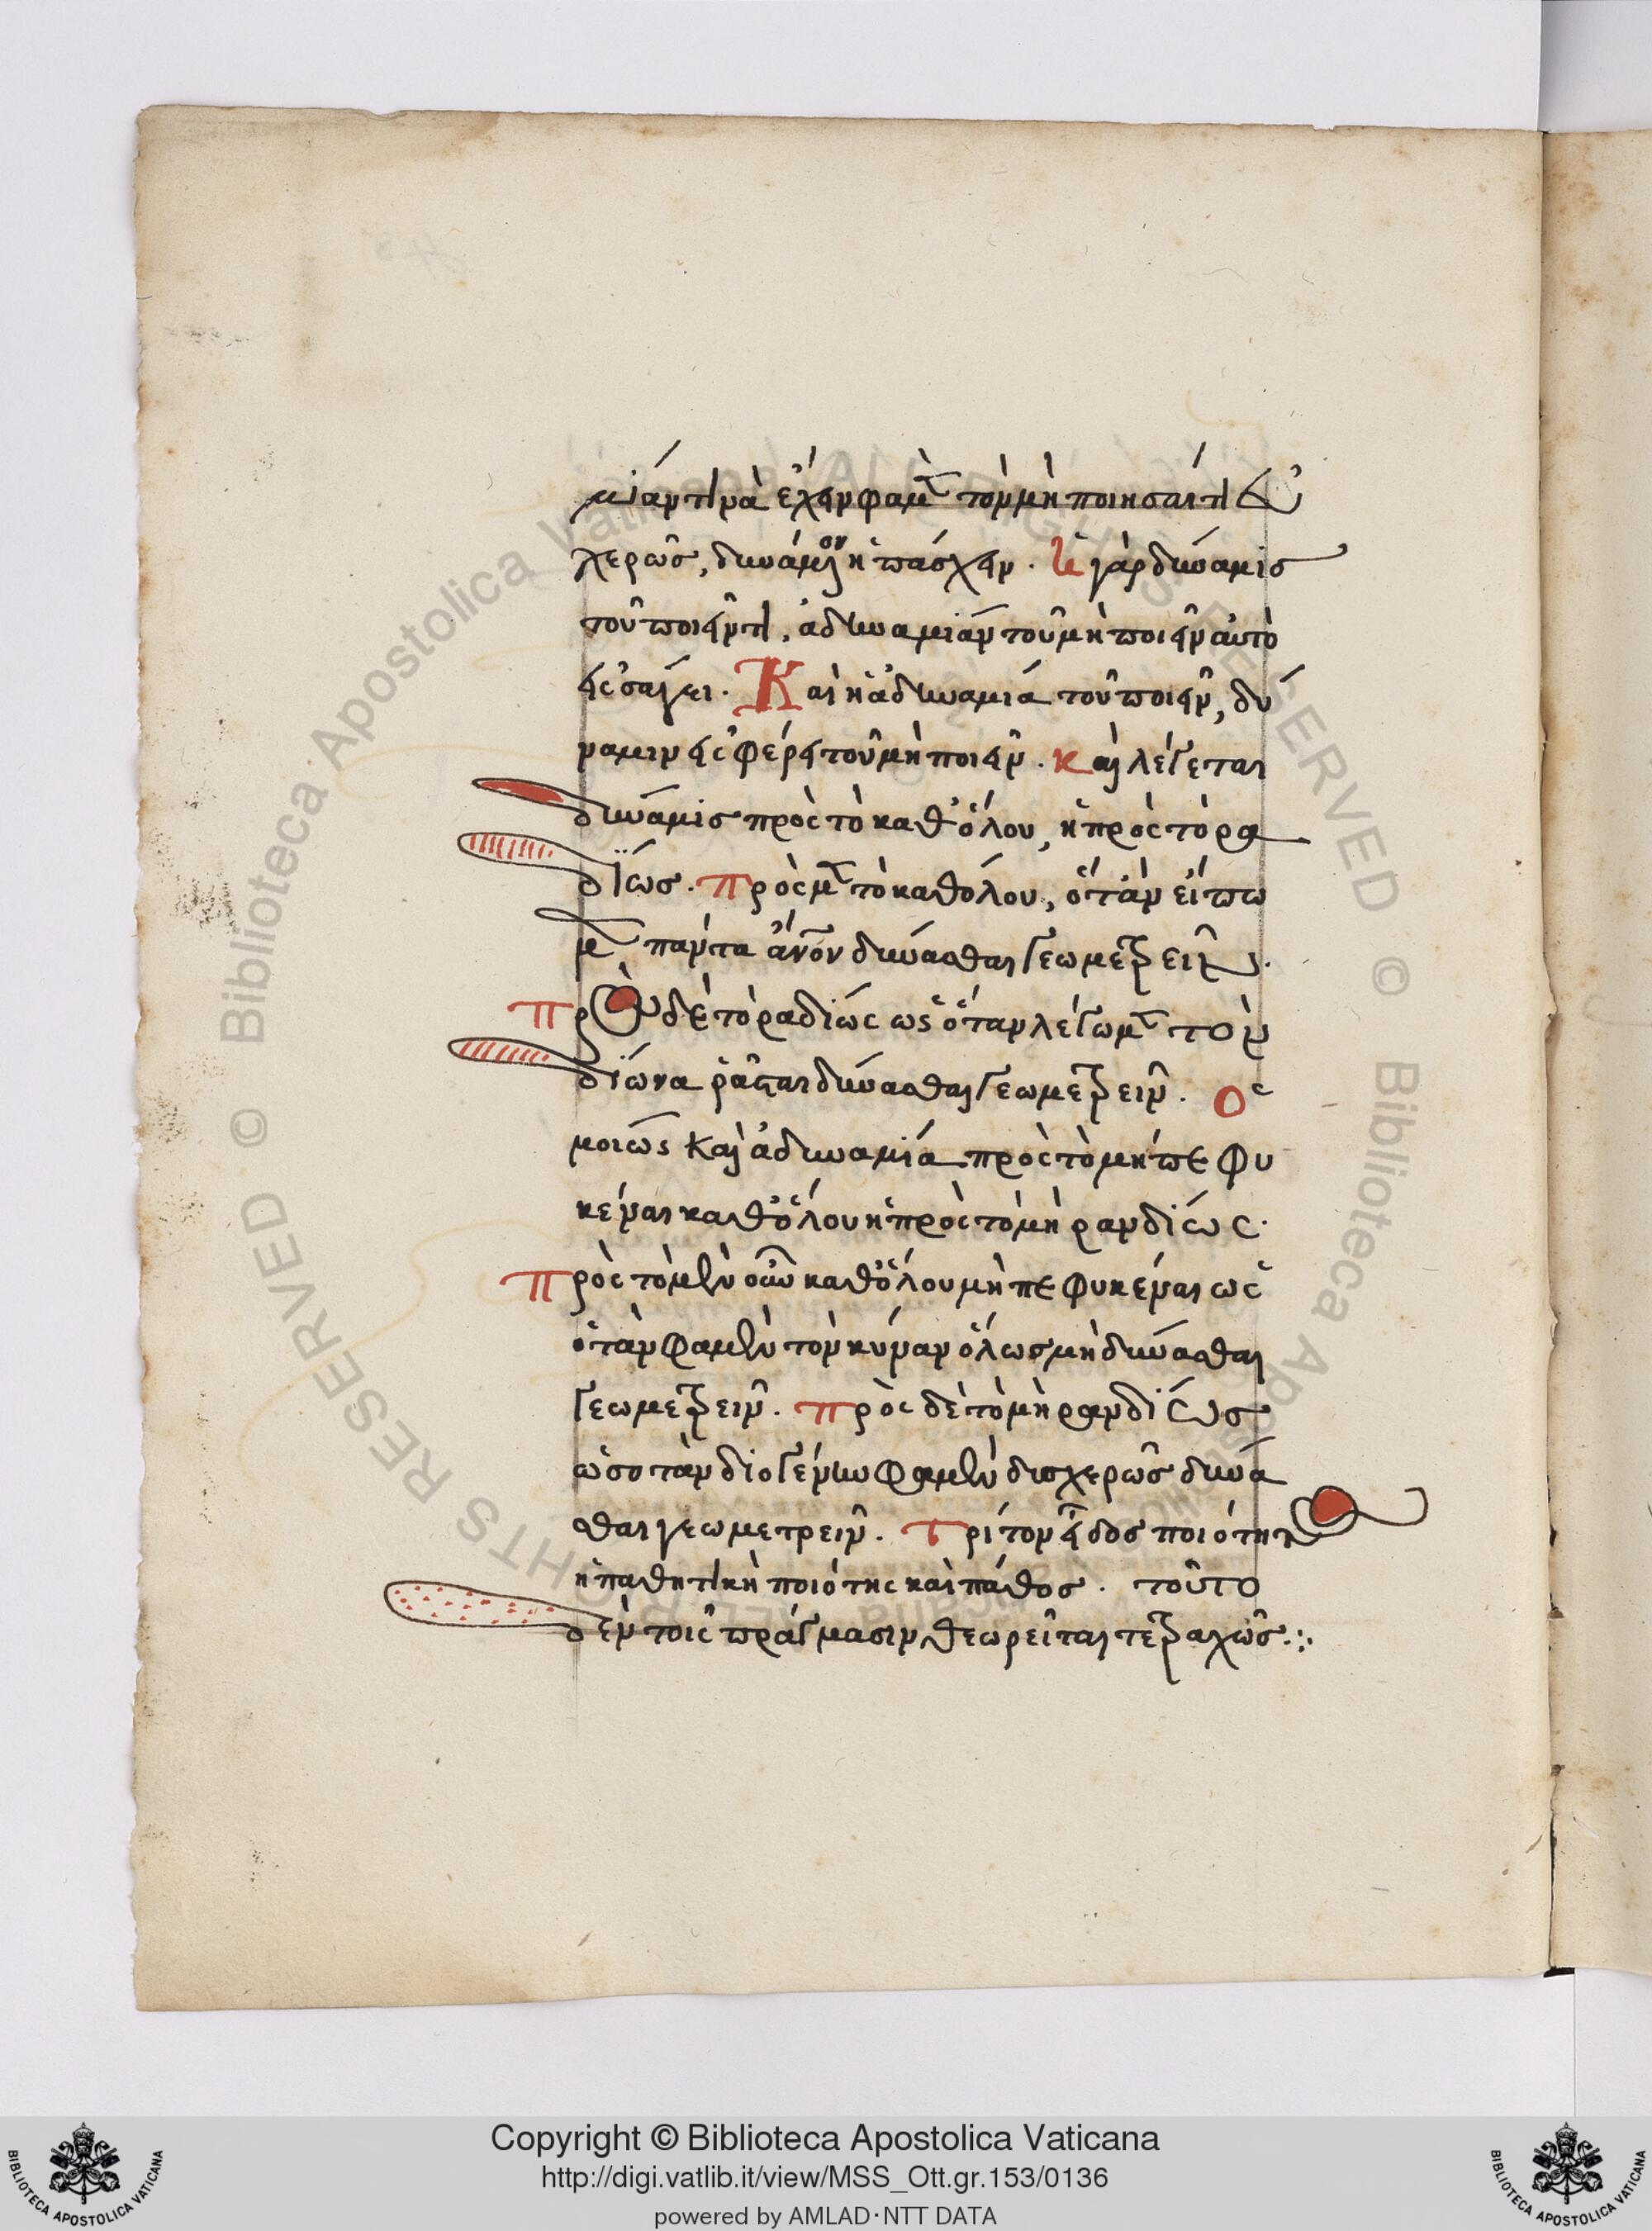 μίαν τινὰ ἔχειν φαμὲν τὸν μὴ ποιῆσαί τι εὐ
χερῶς, δυνάμενον ἢ πάσχειν. ἡ γὰρ δύναμις
τοῦ ποιεῖν τι, ἀδυναμίαν τοῦ μὴ ποιεῖν αὐτὸ
εἰσάγει. Καὶ ἡ ἀδυναμία τοῦ ποιεῖν, δύ
ναμιν εἰσφέρει τοῦ μὴ ποιεῖν. καὶ λέγεται
δύναμις πρὸς τὸ καθ' ὅλου, ἢ πρὸς τὸ ρα
δίως. Πρὸς μὲν τὸ καθόλου, ὅταν εἴπω
μεν πάντα ἄνον δύνασθαι γεωμετρεῖν.
Πρὸς δὲ τὸ ραδίως ὡς ὅταν λέγωμεν τὸν
δίωνα ρᾶσται δύνασθαι γεωμετρεῖν. Ὁ
μοίως καὶ ἀδυναμία πρὸς τὸ μὴ πεφυ
κέναι καθ' ὅλου ἢ πρὸς τὸ μὴ ρανδίως.
Πρὸς τὸ μὲν οὖν καθ' ὅλου μὴ πεφυκέναι ὡς
ὅταν φαμὲν τὸν κύναν ὅλως μὴ δύνασθαι
γεωμετρεῖν. Πρὸς δὲ τὸ μὴ ρανδίως
ὡς ὅταν διογένην φαμὲν δισχερῶς δύνα
σθαι γεωμετρεῖν. Τρίτον εἶδος ποιότητος
ἡ παθητικὴ ποιότης καὶ πάθος. τοῦτο
δ' ἐν τοῖς πράγμασιν θεωρεῖται τετραχῶς.
Copyright © Biblioteca Apostolica Vaticana
http://digi.vatlib.it/view/MSS_Ott.gr.153/0136
powered by AMLAD·NTT DATA
BIBLIOTECA APOSTOLICA VATICANA
BIBLIOTECA APOSTOLICA VATICANA